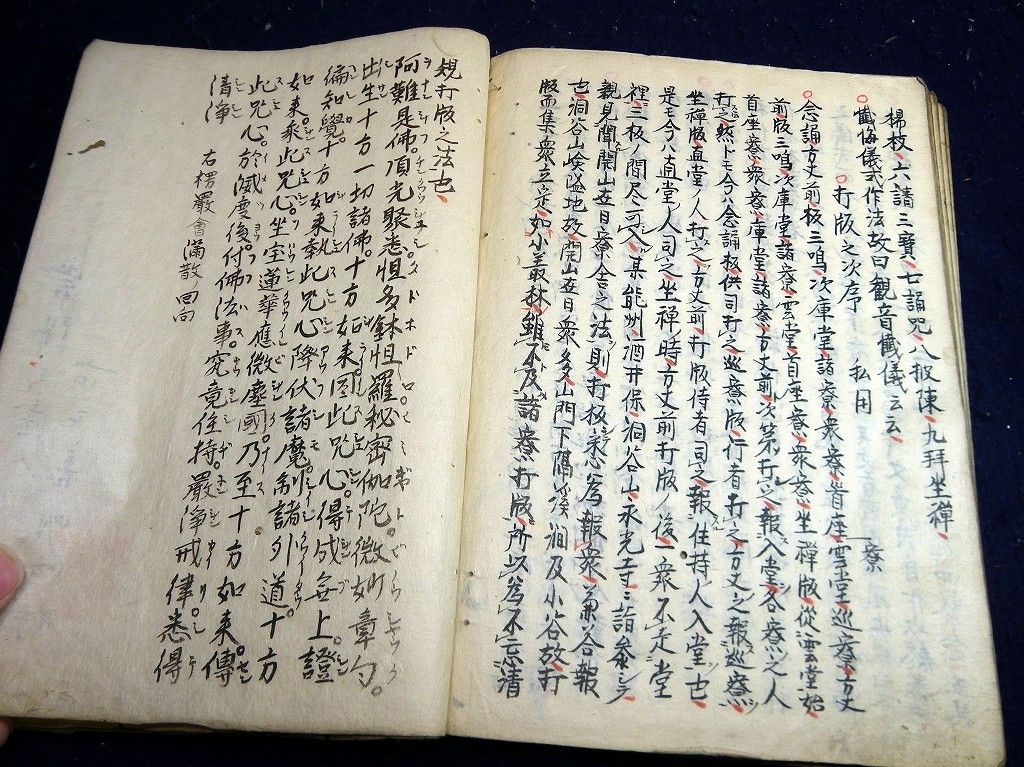 楊枝、六請三寶、七誦咒、八披陳、九拜坐禪、
懺悔儀式作法故曰觀音懺儀云云
○打版之次序 私用
寮
○念誦方丈前板三鳴、次庫堂諸寮衆寮首座雲堂巡寮方丈
前版三鳴次庫堂諸寮雲堂首座寮衆寮坐禪版從雲堂始
首座寮衆寮庫堂諸寮方丈前次第打之報入堂各寮之人
打之然トモ今ハ念誦板供司打之巡寮版行者打之方丈之報巡寮
坐禪版直堂ノ人打之方丈前ノ打版侍者司之報住持人入堂也
是モ今ハ直堂ノ人司之坐禪時方丈前打版ノ後一衆不走堂
裡三板ノ間尽可入某能州酒井保洞谷山永光寺ニ詣參シテ
親見聞開山在日寮舎之法則打板 爲報衆 報
也洞谷山嶮 地故開山在日衆多山門下隔溪澗及小谷故打
版而集衆立定如小叢林雖不及諸寮打版所以爲不忘清
規打版之法也、
阿難是佛頂光聚悉怛多鉢怛羅秘密伽陀微妙章句。
出生十方一切諸佛。十方如來因此咒心得成無上證
徧知覺。十方如來執此咒心降伏諸魔制諸外道。十方
如來乘此咒心。坐宝蓮華應微塵國乃至十方如來傳
此咒心。於滅度後。付佛法事。究竟住持。嚴淨戒律悉得
清淨
右楞嚴會滿散回向